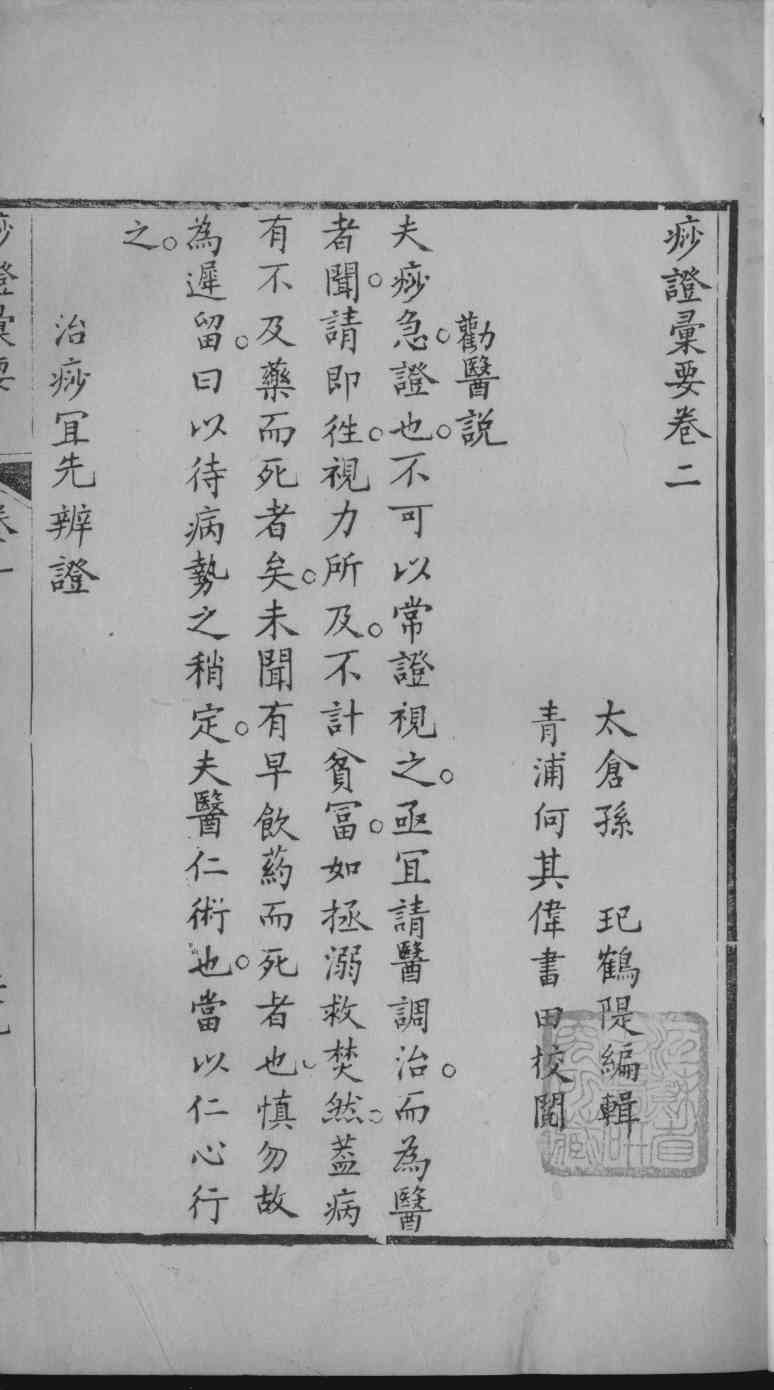 痧證彙要卷二
太倉孫 玘鶴隄編輯
青浦何其偉書田校閱
勸醫説
夫痧急。證也。不可以常證視之。亟冝請醫調治。而為醫
者聞。請即徃。視力所及。不計貧冨。如拯溺救焚然。葢病
有不及藥而死者矣。未聞有早飲药而死者也。慎勿故
為遲留。曰以待病勢之稍定。夫醫仁術也。當以仁心行
之。
治痧冝先辨證